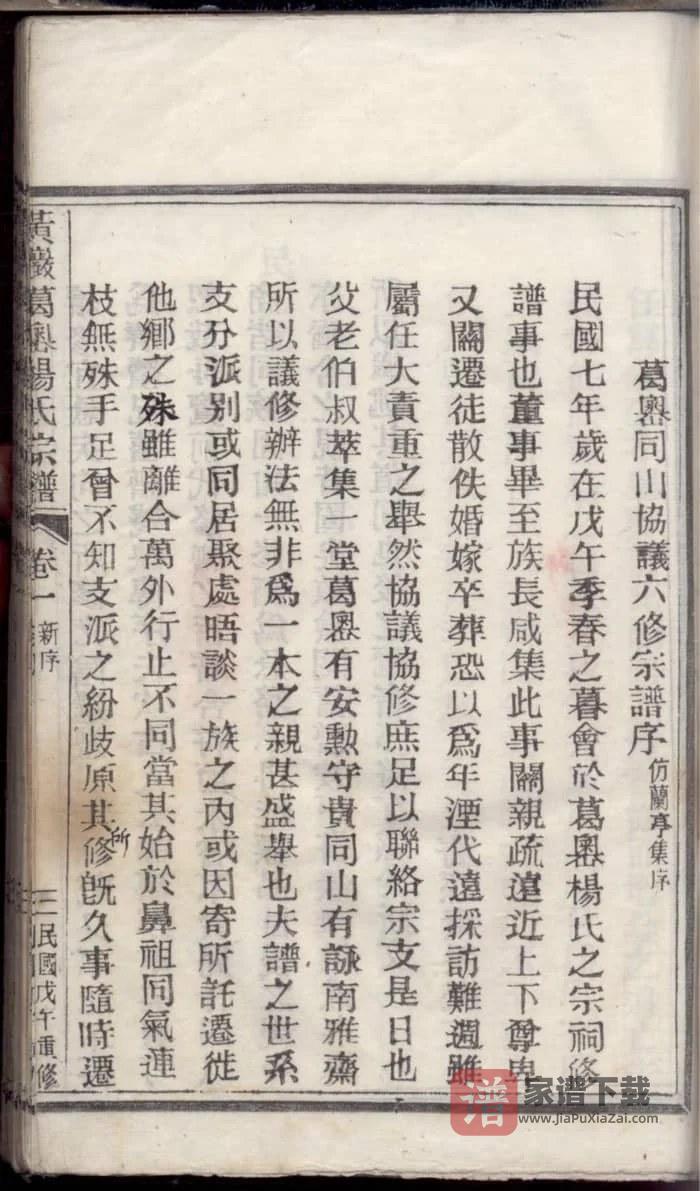 葛嶴同山協議六修宗譜序 仿蘭亭集序
民國七年歲在戊午季春之暮會於葛嶴楊氏之宗祠修
譜事也董事畢至族長咸集此事關親疏遠近上下尊卑
又關遷徒散佚婚嫁卒葬恐以爲年湮代遠採訪難週雖
屬任大責重之舉然協議協修庶足以聯絡宗支是日也
父老伯叔萃集一堂葛嶴有安勲守貴同山有詠南雅齋
所以議修辦法無非爲一本之親甚盛舉也夫譜之世系
支分派別或同居聚處晤談一族之內或因寄所託遷徙
他鄉之殊雖離合萬外行止不同當其始於鼻祖同氣連
枝無殊手足曾不知支派之紛歧原其所修旣久事隨時遷
黃巖葛嶴楊氏宗譜 卷一 新序 三 民國戊午重修
譜 家谱下载
www.JiaPuXiaZai.com